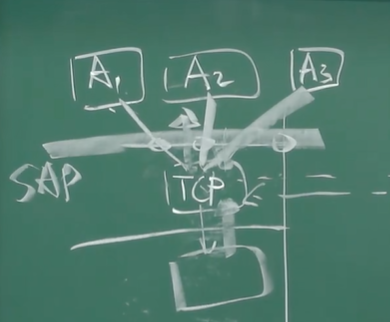 A1 A2 A3
SAP
TCP